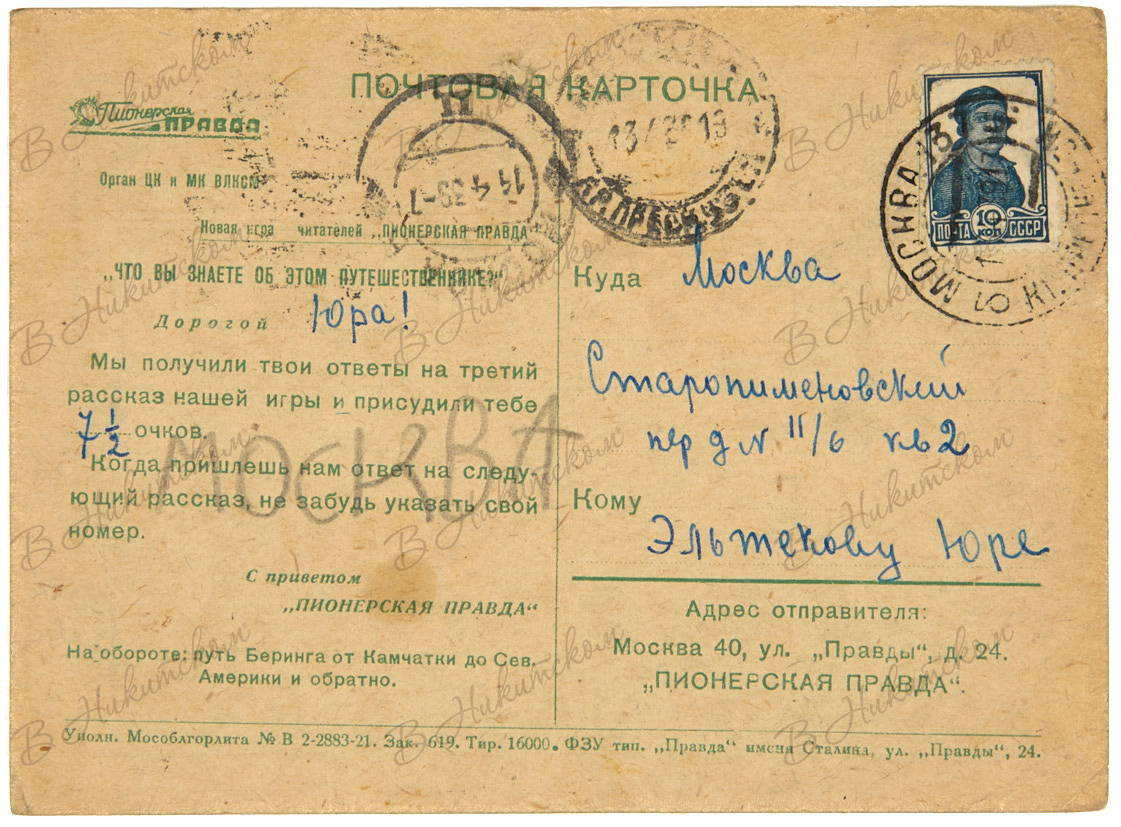 ПОЧТОВАЯ КАРТОЧКА
Пионерская
ПРАВДА
Орган ЦК и МК ВЛКСМ
Новая игра читателей „ПИОНЕРСКАЯ ПРАВДА“
„ЧТО ВЫ ЗНАЕТЕ ОБ ЭТОМ ПУТЕШЕСТВЕННИКЕ?“
Дорогой Юра!
Мы получили твои ответы на третий
рассказ нашей игры и присудили тебе
7 1/2 очков.
Когда пришлешь нам ответ на следу-
ющий рассказ, не забудь указать свой
номер.
МОСКВА
С приветом
„ПИОНЕРСКАЯ ПРАВДА“
На обороте: путь Беринга от Камчатки до Сев.
Америки и обратно.
ПОЧТА 10 КОП СССР
МОСКВА
Куда Москва
Старопименовский
пер д N 11/6 кв 2
Кому
Эльтекову Юре
Адрес отправителя:
Москва 40, ул. „Правды“, д. 24.
„ПИОНЕРСКАЯ ПРАВДА“.
Уполн. Мособлгорлита № В 2-2883-21. Зак. 619. Тир. 16000. ФЗУ тип. „Правда“ имени Сталина, ул. „Правды“, 24.
В Никитском